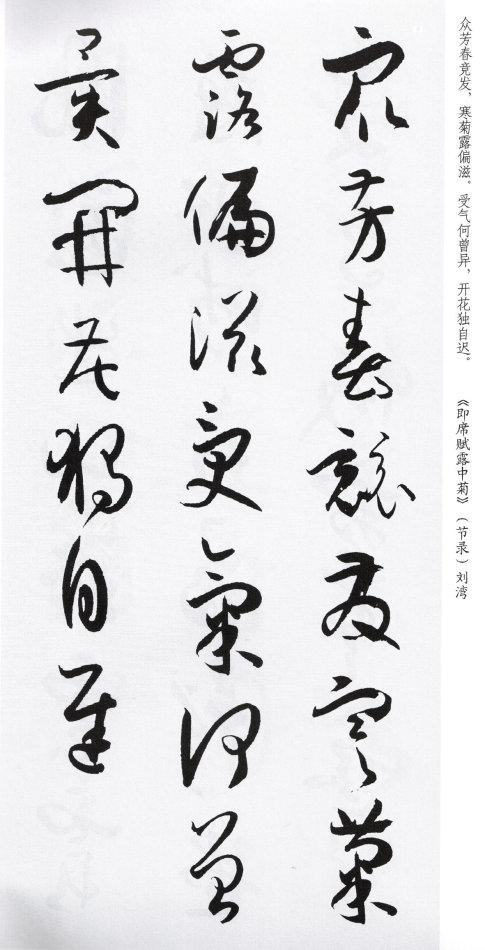 众芳春竟发，寒菊露偏滋。受气何曾异，开花独自迟。　《即席赋露中菊》（节录）刘湾
眾芳春競發寒菊
露偏滋受氣何曾
異開花獨自遲